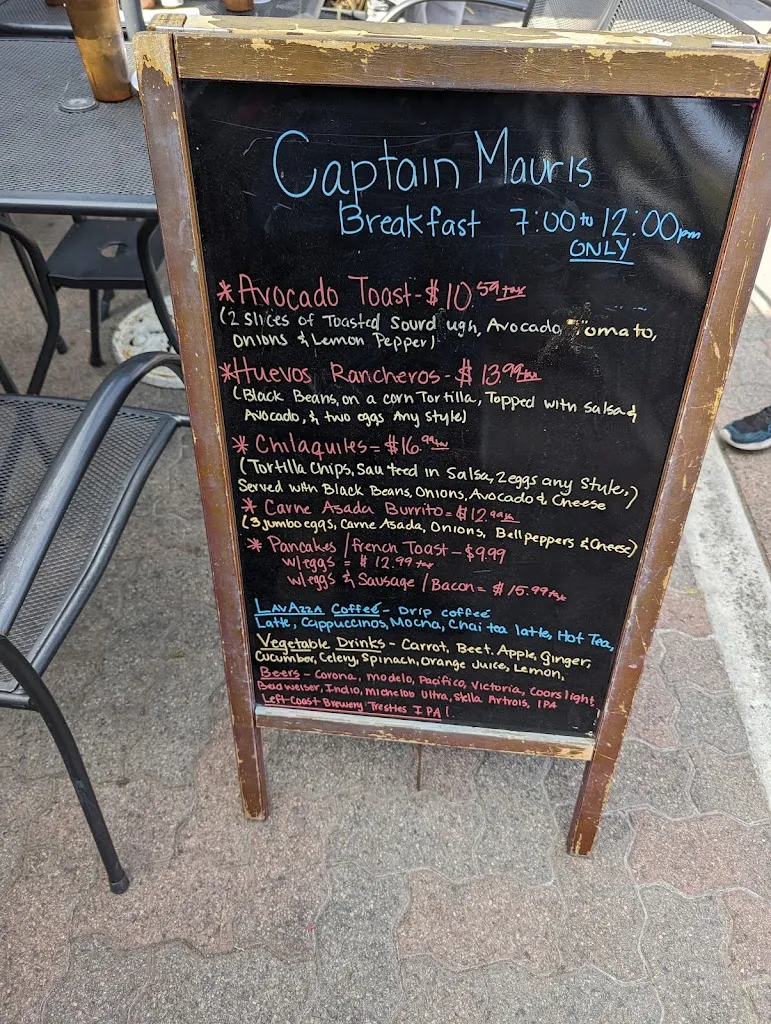 Captain Mauris
Breakfast 7:00 to 12:00pm
ONLY
*Avocado Toast-$10.59+tax
(2 slices of Toasted Sourd ugh, Avocado, Tomato,
Onions & Lemon Pepper)
*Huevos Rancheros-$13.99+tax
(Black Beans, on a corn Tortilla, Topped with salsa &
Avocado, & two eggs Any style)
*Chilaquiles=$16.99+tax
(Tortilla Chips, Sau teed in Salsa, 2eggs any Style,)
Served with Black Beans, Onions, Avocado & Cheese
*Carne Asada Burrito=$12.99+tax
(3 jumbo eggs, Carne Asada, Onions, Bell peppers & Cheese)
*Pancakes / french Toast-$9.99
w/eggs = $12.99+tax
w/eggs & Sausage / Bacon= $15.99+tax
LavAzza Coffee- Drip coffee
Latte, Cappuccinos, Mocha, Chai tea latte, Hot Tea,
Vegetable Drinks- Carrot, Beet, Apple, ginger,
Cucumber, Celery, Spinach, Orange Juice, Lemon,
Beers- Corona, modelo, Pacifico, Victoria, Coors light,
Bead weiser, Indio, Michelob Ultra, Stella Artrois, IPA
Left-Coast Brewery Trestles IPA!